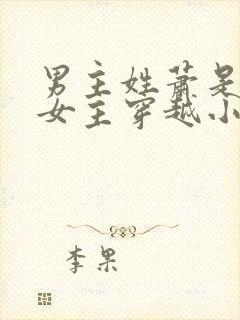 男主姓萧是
女主穿越小
李果